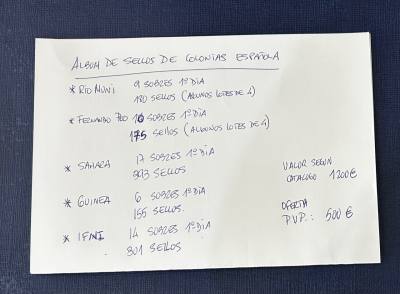 ALBUM DE SELLOS DE COLONIAS ESPAÑOLA
* RIO MUNI 9 SOBRES 1º DIA
180 SELLOS (ALGUNOS LOTES DE 4)
* FERNANDO POO 16 SOBRES 1º DIA
175 SELLOS (ALGUNOS LOTES DE 4)
* SAHARA 17 SOBRES 1º DIA
393 SELLOS
* GUINEA 6 SOBRES 1º DIA
155 SELLOS.
* IFNI 14 SOBRES 1º DIA
301 SELLOS
VALOR SEGUN
CATALOGO 1200€
OFERTA
P.V.P.: 500€